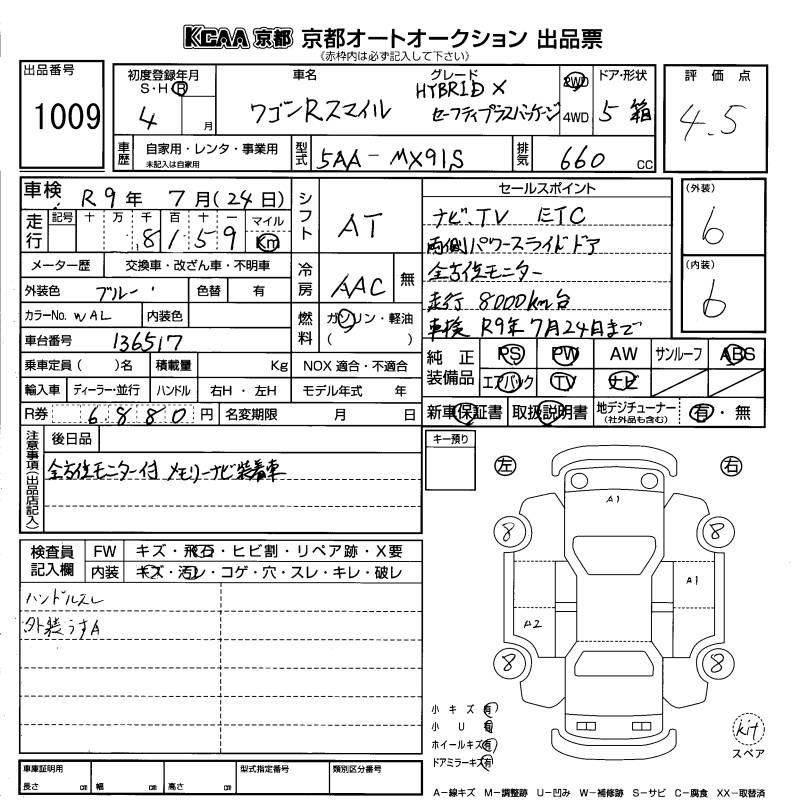 KCAA 京都 京都オートオークション 出品票
(赤枠内は必ず記入して下さい)
出品番号
1009
初度登録年月
S・H・R
4 月
車名
ワゴンRスマイル
グレード
HYBRID X
セーフティプラスパッケージ
2WD
4WD
ドア・形状
5 箱
評価点
4.5
車歴
自家用・レンタ・事業用
未記入は自家用
型式
5AA-MX91S
排気
660 CC
車検 R9年 7月(24日)
走行
記号 十 万 千 百 十 一
8159
マイル
Km
シフト
AT
メーター歴 交換車・改ざん車・不明車
外装色 ブルー 色替 有
カラーNo. WAL 内装色
車台番号 136517
冷房
AAC 無
燃料
ガソリン・軽油
( )
乗車定員( )名 積載量 Kg NOX 適合・不適合
輸入車 ディーラー・並行 ハンドル 右H・左H モデル年式 年
R券 6880円 名変期限 月 日
セールスポイント
ナビ.TV ETC
両側パワースライドドア
全方位モニター
走行 8000km台
車検 R9年7月24日まで
(外装)
6
(内装)
6
純正装備品
PS PW AW サンルーフ ABS
エアバック TV ナビ
新車保証書 取扱説明書 地デジチューナー
(社外品も含む)
有・無
注意事項(出品店記入)
後日品
全方位モニター付 メモリーナビ装着車
キー預り
左
右
検査員記入欄
FW キズ・飛石・ヒビ割・リペア跡・X要
内装 キズ・汚レ・コゲ・穴・スレ・キレ・破レ
ハンドルスレ
外装うすA
A1
8
8
A1
A2
8
8
小キズ有
小U有
ホイールキズ有
ドアミラーキズ有
kit
スペア
車庫証明用
長さ cm 幅 cm 高さ cm
型式指定番号
類別区分番号
A-線キズ M-調整跡 U-凹み W-補修跡 S-サビ C-腐食 XX-取替済